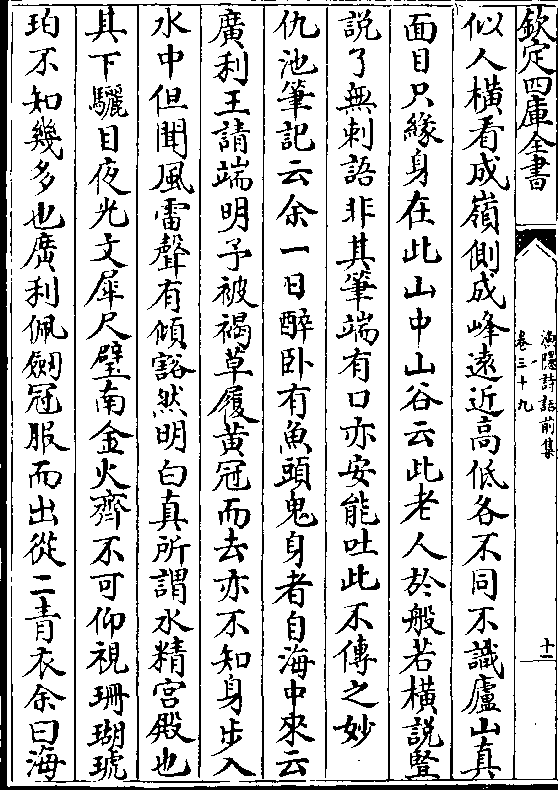 欽定四庫全書
漁隱詩話前集
卷三十九
十一
似人橫看成嶺側成峰遠近高低各不同不識廬山真
面目只緣身在此山中山谷云此老人於般若橫說豎
說了無剰語非其筆端有口亦安能吐此不傳之妙
仇池筆記云余一日醉臥有魚頭鬼身者自海中來云
廣利王請端明予被褐草履黃冠而去亦不知身步入
水中但聞風雷聲有傾豁然明白真所謂水精宮殿也
其下驪目夜光文犀尺璧南金火齊不可仰視珊瑚琥
珀不知幾多也廣利佩劒冠服而出從二青衣余曰海